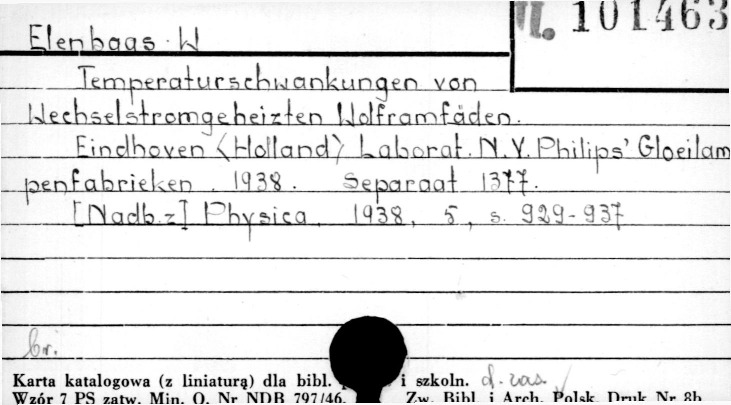 101463
Elenbaas W
Temperaturschwankungen von
Wechselstromgeheizten Wolframfäden.
Eindhoven <Holland> Laborat. N.V. Philips' Gloeilam
penfabrieken. 1938. Separaat 1377.
[Nadb.z] Physica, 1938, 5, s. 929-937
br.
Karta katalogowa (z liniaturą) dla bibl. i szkoln. d. zas.
Wzór 7 PS zatw. Min. O. Nr NDB 797/46. Zw. Bibl. i Arch. Polsk. Druk Nr 8b